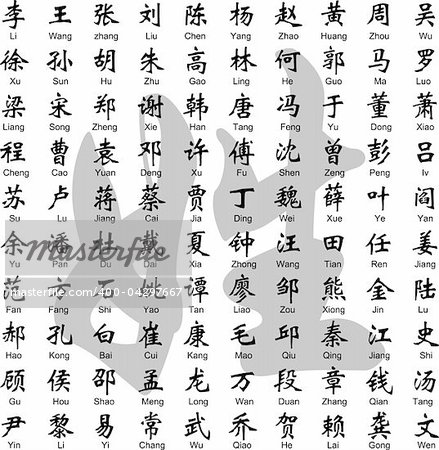 李 王 张 刘 陈 杨 赵 黄 周 吴
Li Wang zhang Liu Chen Yang Zhao Huang Zhou Wu
徐 孙 胡 朱 高 林 何 郭 马 罗
Xu Sun Hu Zhu Gao Lin He Guo Ma Luo
梁 宋 郑 谢 韩 唐 冯 于 董 萧
Liang Song Zheng Xie Han Tang Feng Yu Dong Xiao
程 曹 袁 邓 许 傅 沈 曾 彭 吕
Cheng Cao Yuan Deng Xu Fu Shen Zeng Peng lv
苏 卢 蒋 蔡 贾 丁 魏 薛 叶 阎
Su Lu Jiang Cai Jia Ding Wei Xue Ye Yan
余 潘 杜 戴 夏 钟 汪 田 任 姜
Yu Pan Du Dai Xia Zhong Wang Tian Ren Jiang
masterfile
范 方 石 姚 谭 廖 邹 熊 金 陆
Fan Fang Shi Yao Tan Liao Zou Xiong Jin Lu
郝 孔 白 崔 康 毛 邱 秦 江 史
Hao Kong Bai Cui Kang Mao Qiu Qing Jiang Shi
顾 侯 邵 孟 龙 万 段 章 钱 汤
Gu Hou Shao Meng Long Wan Duan Zhang Qian Tang
尹 黎 易 常 武 乔 贺 赖 龚 文
Yin Li Yi Chang Wu Qiao He Lai Gong Wen